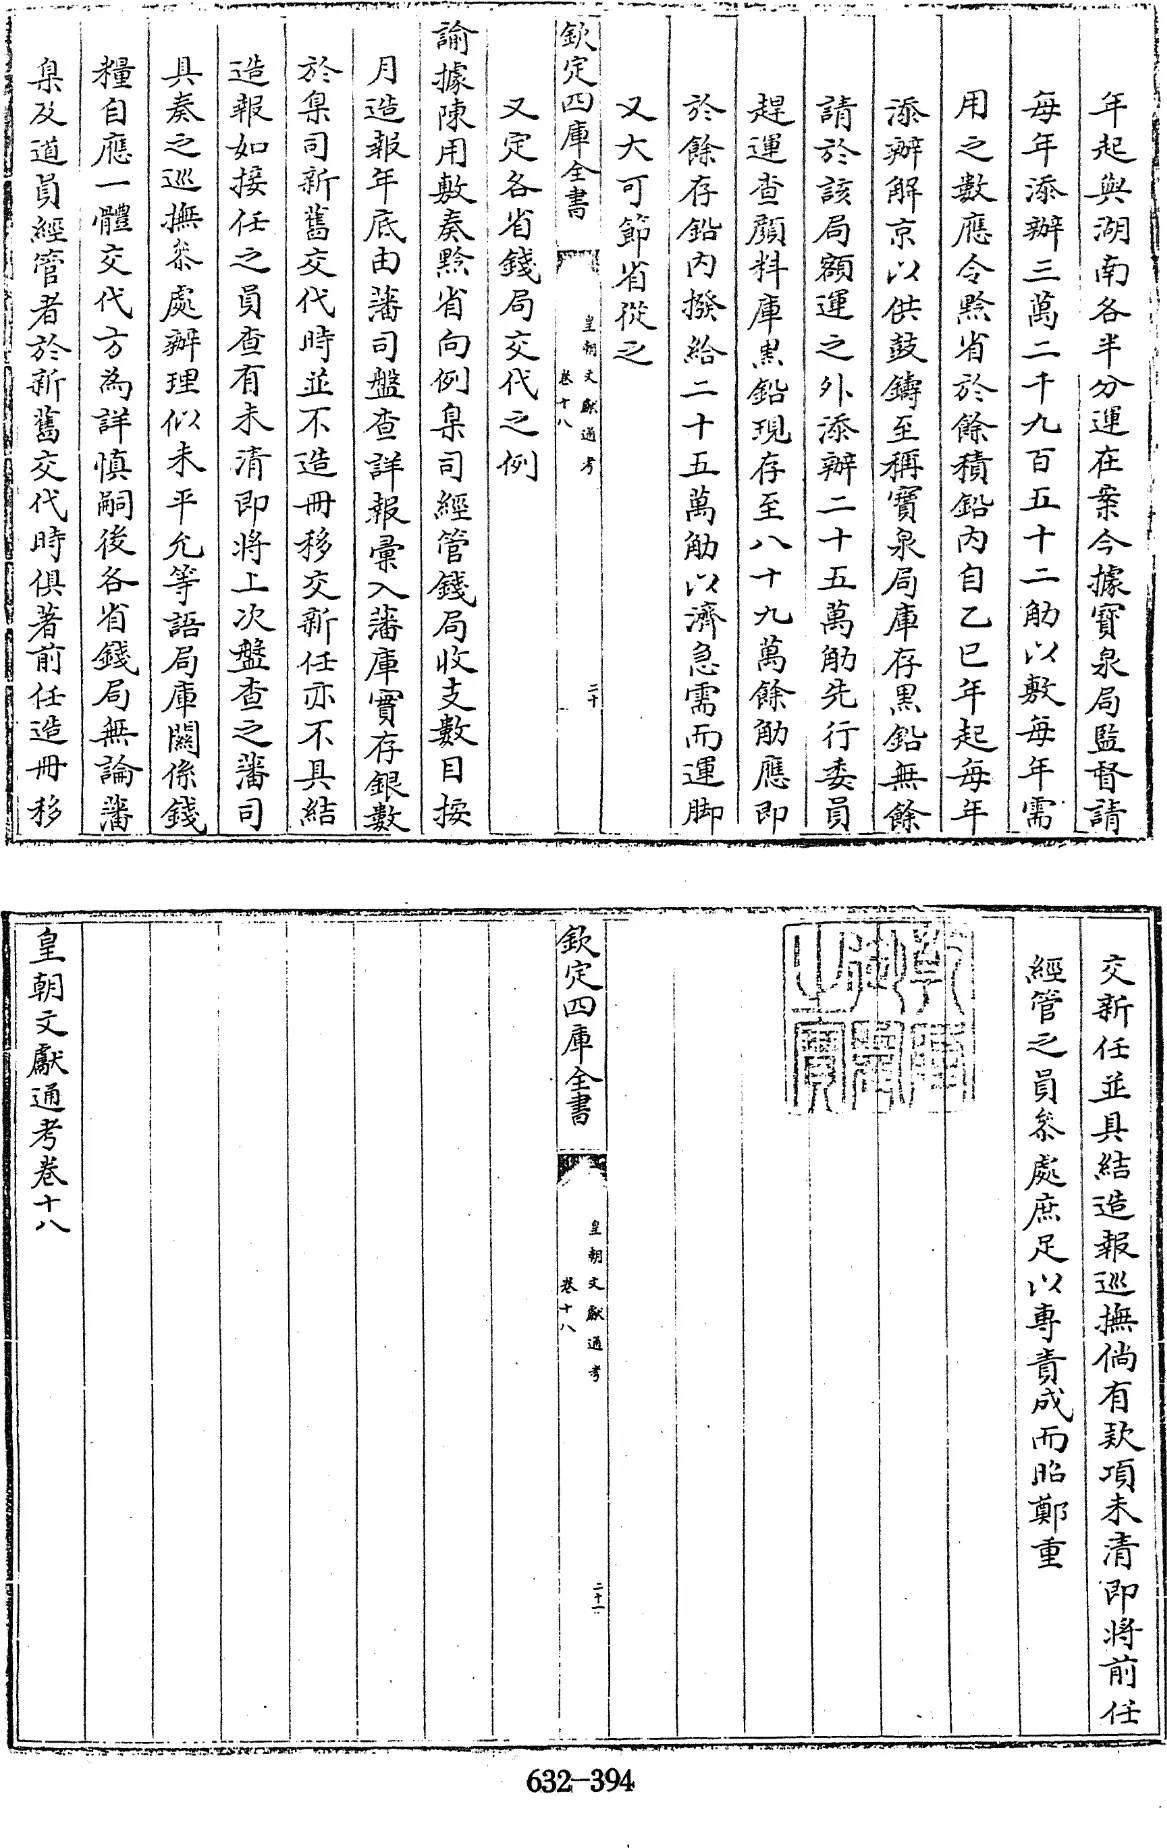 年起與湖南各半分運在案今據寶泉局監督請
每年添辦三萬二千九百五十二觔以敷每年需
用之數應令黔省於餘積鉛内自乙巳年起每年
添辦解京以供鼓鑄至稱寶泉局庫存黒鉛無餘
請於該局額運之外添辦二十五萬觔先行委員
趕運查顔料庫黒鉛現存至八十九萬餘觔應即
於餘存鉛内撥給二十五萬觔以濟急需而運脚
又大可節省從之
欽定四庫全書
皇朝文獻通考
卷十八
二十
又定各省錢局交代之例
諭據陳用敷奏黔省向例臬司經管錢局收支數目按
月造報年底由藩司盤查詳報彚入藩庫實存銀數
於臬司新舊交代時並不造冊移交新任亦不具結
造報如接任之員查有未清即將上次盤查之藩司
具奏之巡撫叅處辦理似未平允等語局庫闗係錢
糧自應一體交代方為詳慎嗣後各省錢局無論藩
臬及道員經管者於新舊交代時俱著前任造冊移
交新任並具結造報巡撫倘有款項未清即將前任
經管之員叅處庶足以專責成而昭鄭重
乾隆御覽之寶
欽定四庫全書
皇朝文獻通考
卷十八
二十一
皇朝文獻通考卷十八
632-394